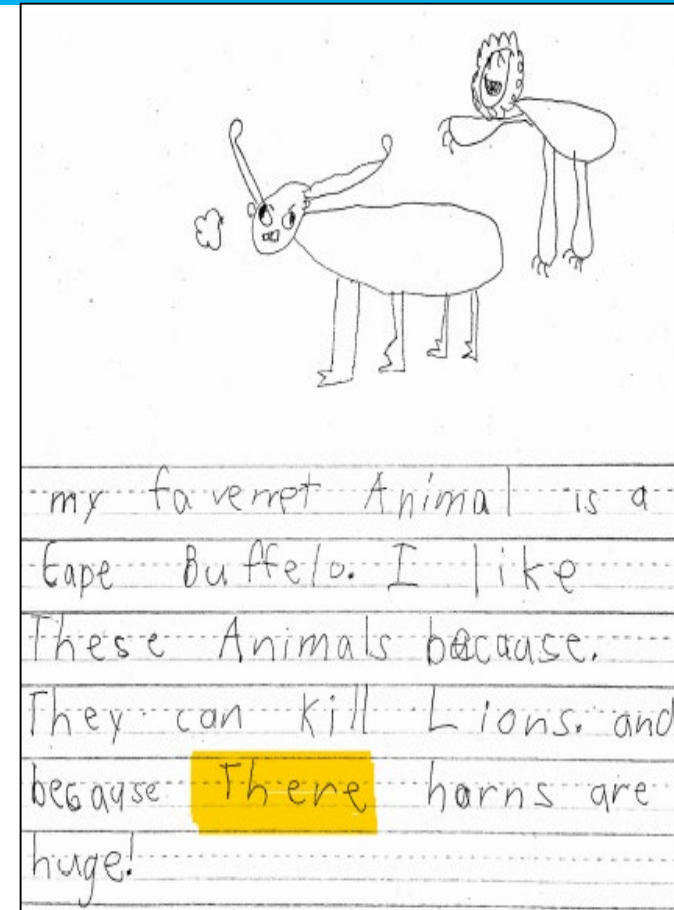 my faverret Animal is a
Cape Buffelo. I like
These Animals because.
They can kill Lions. and
because There horns are
huge!